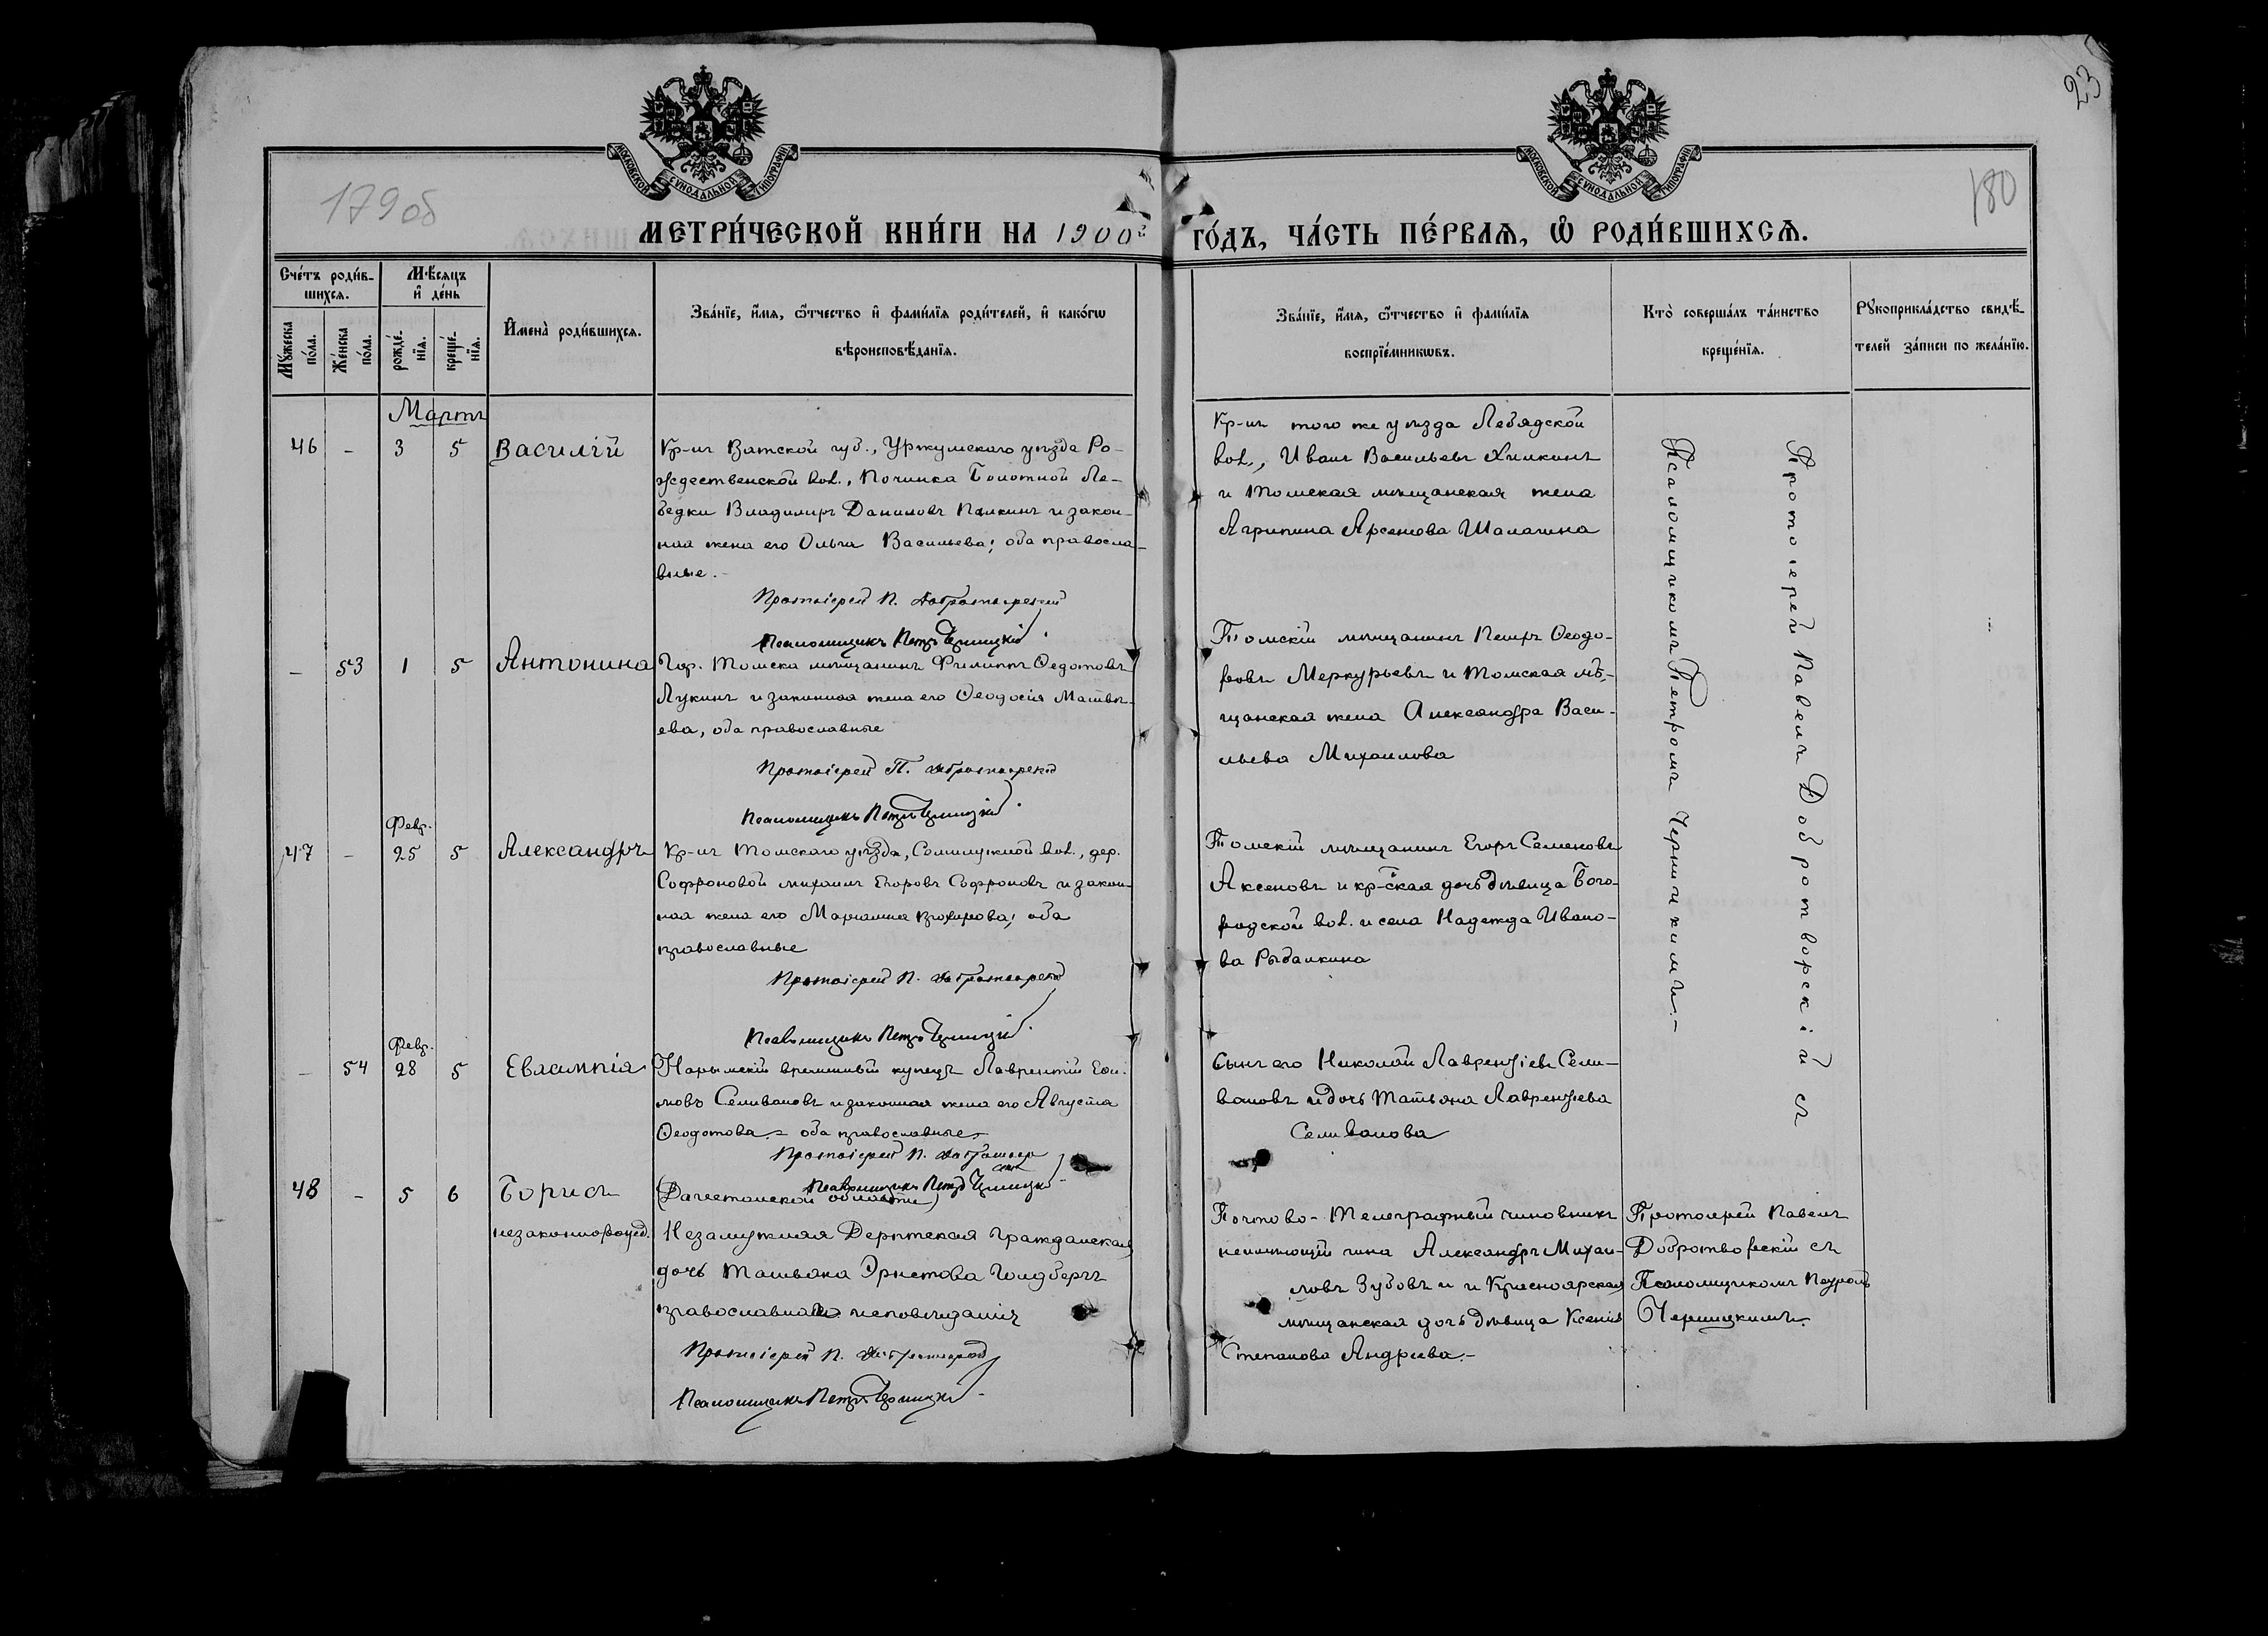 23
179об
180
МОСКОВСКОЙ СУНОДАЛЬНОЙ ТИПОГРАФІИ
МОСКОВСКОЙ СУНОДАЛЬНОЙ ТИПОГРАФІИ
МЕТРИ́ЧЕСКОЙ КНИ́ГИ НА 1900й ГО́ДЪ, ЧА́СТЬ ПЕ́РВАѦ, Ѡ РОДИ́ВШИХСѦ.
Сче́тъ роди́в-
шихсѧ.
Мꙋ́жеска по́ла.
Же́нска по́ла.
Мѣ́сѧцъ
и де́нь
рожде́-
нїѧ.
креще́-
нїѧ.
Имена̀ роди́вшихсѧ.
Зва́нїе, и́мѧ, ѻ́тчество и фами́лїѧ роди́телей, и како́гѡ
вѣроисповѣ́данїѧ.
Зва́нїе, и́мѧ, ѻ́тчество и фами́лїѧ
воспрїе́мникѡвъ.
Кто̀ соверша́лъ та́инство
креще́нїѧ.
Рꙋкоприкла́дство свидѣ́-
телей за́писи по жела́нїю.
Мартъ
46 - 3 5 Василій
Кр-нъ Вятской губ., Уржумскаго уѣзда Ро-
ждественской вол., Починка Болотной Ле-
бедки Владимиръ Даниловъ Палкинъ и закон-
ная жена его Ольга Васильева; оба правосла-
вные.
Протоіерей П. Добротворскій
Псаломщикъ Петръ Черницкій
Кр-нъ того же уѣзда Лебядской
вол., Иванъ Васильевъ Хилкинъ
и Томская мѣщанская жена
Агрипина Арсенова Шалагина
- 53 1 5 Антонина
Гор. Томска мѣщанинъ Филиппъ Ѳедотовъ
Лукинъ и законная жена его Ѳеодосія Матвѣ-
ева, оба православные
Протоіерей П. Добротворскій
Псаломщикъ Петръ Черницкій
Томскій мѣщанинъ Петръ Ѳеодо-
ровъ Меркурьевъ и Томская мѣ-
щанская жена Александра Васи-
льева Михаилова
Февр.
47 - 25 5 Александръ
Кр-нъ Томскаго уѣзда, Семилужной вол., дер.
Софроновой Михаилъ Егоровъ Софроновъ и закон-
ная жена его Маріамна оба
православные
Протоіерей П. Добротворскій
Псаломщикъ Петръ Черницкій
Томскій мѣщанинъ Егоръ Семеновъ
Аксеновъ и кр-ская дочь дѣвица Бого-
родской вол. и села Надежда Ивано-
ва Рыбалкина
Февр.
- 54 28 5 Евлампія
Нарымскій временный купецъ Лаврентій Ефи-
мовъ Селивановъ и законная жена его Августа
Ѳеодотова - оба православные.
Протоіерей П. Добротвор
скій
Псаломщикъ Петръ Черницкій
Сынъ его Николай Лаврентіевъ Сели-
вановъ и дочь Татьяна Лаврентіева
Селиванова
Псаломщикомъ Петромъ Черницкимъ.-
Протоіерей Павелъ Добротворскій съ
48 - 5 6 Борисъ
незаконнорожд.
(Дагестанской области)
Незамужняя Дерптская гражданская
дочь Татьяна Эрнстова Голдбергъ
православнаго исповѣданія
Протоіерей П. Добротворскій
Псаломщикъ Петръ Черницкій
Почтово-Телеграфный чиновникъ
неимѣющій чина Александръ Михаи-
ловъ Зубовъ и и Красноярская
мѣщанская дочь дѣвица Ксенія
Степанова Андреева.-
Протоіерей Павелъ
Добротворскій съ
Псаломщикомъ Петромъ
Черницкимъ.